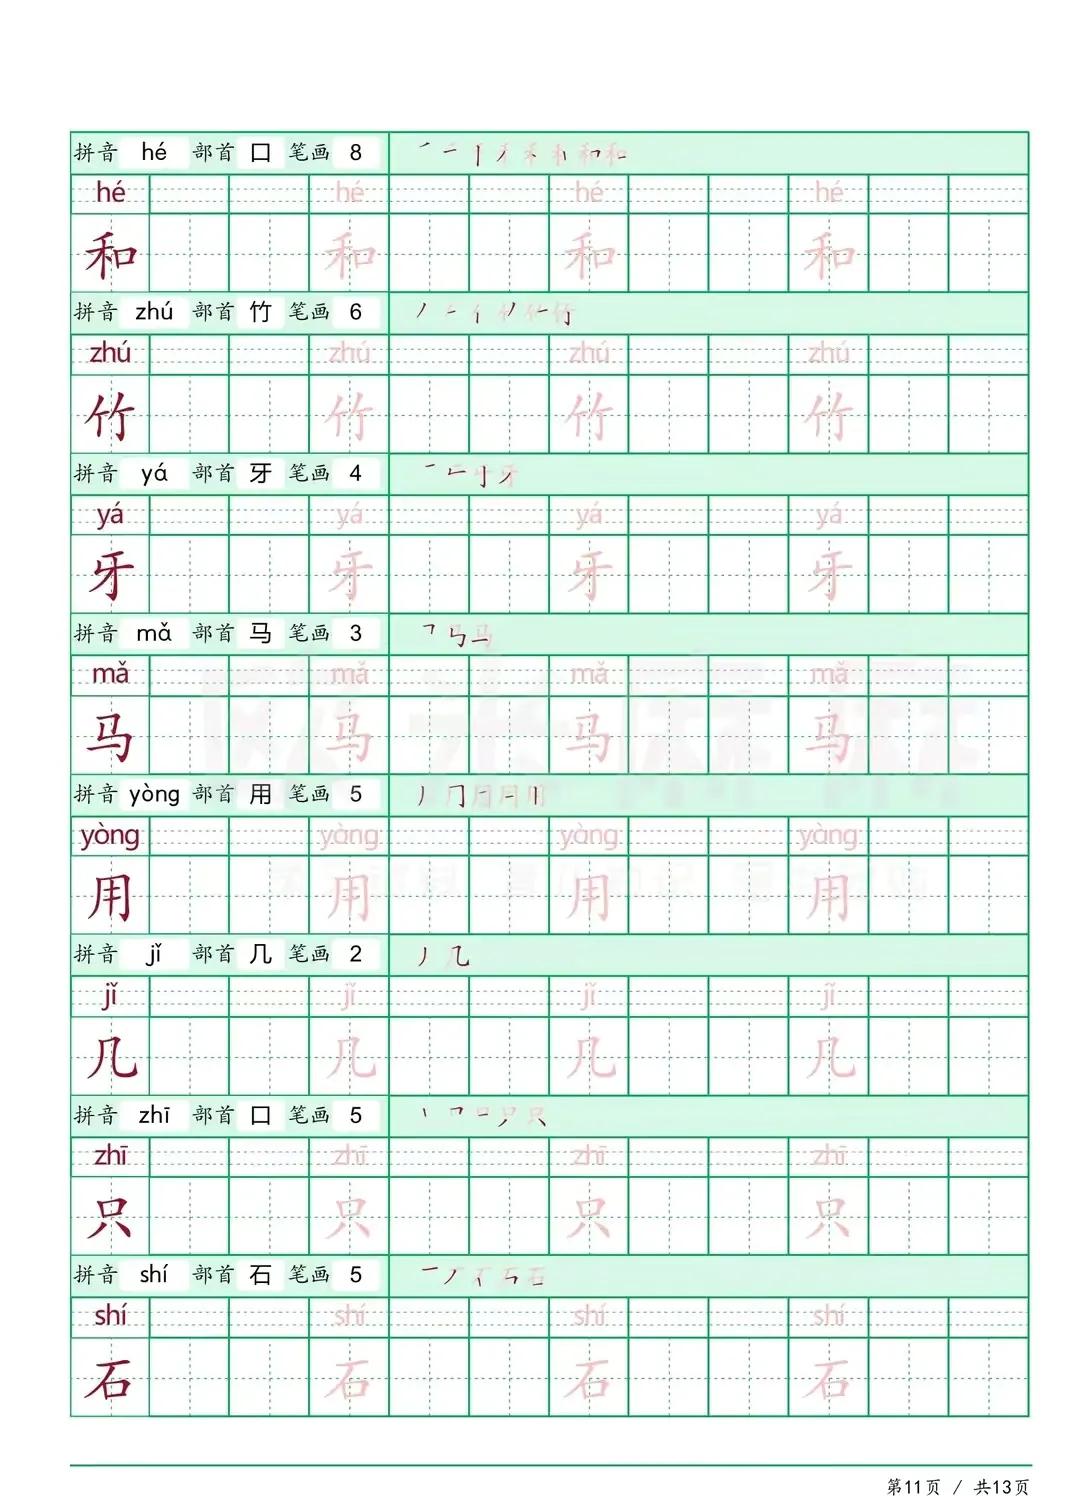 拼音 hé 部首 口 笔画 8
hé hé hé hé
和 和 和 和
拼音 zhú 部首 竹 笔画 6
zhú zhú zhú zhú
竹 竹 竹 竹
拼音 yá 部首 牙 笔画 4
yá yá yá yá
牙 牙 牙 牙
拼音 mǎ 部首 马 笔画 3
mǎ mǎ mǎ mǎ
马 马 马 马
拼音 yòng 部首 用 笔画 5
yòng yòng yòng yòng
用 用 用 用
拼音 jǐ 部首 几 笔画 2
jǐ jǐ jǐ jǐ
几 几 几 几
拼音 zhī 部首 口 笔画 5
zhī zhī zhī zhī
只 只 只 只
拼音 shí 部首 石 笔画 5
shí shí shí shí
石 石 石 石
第11页 / 共13页